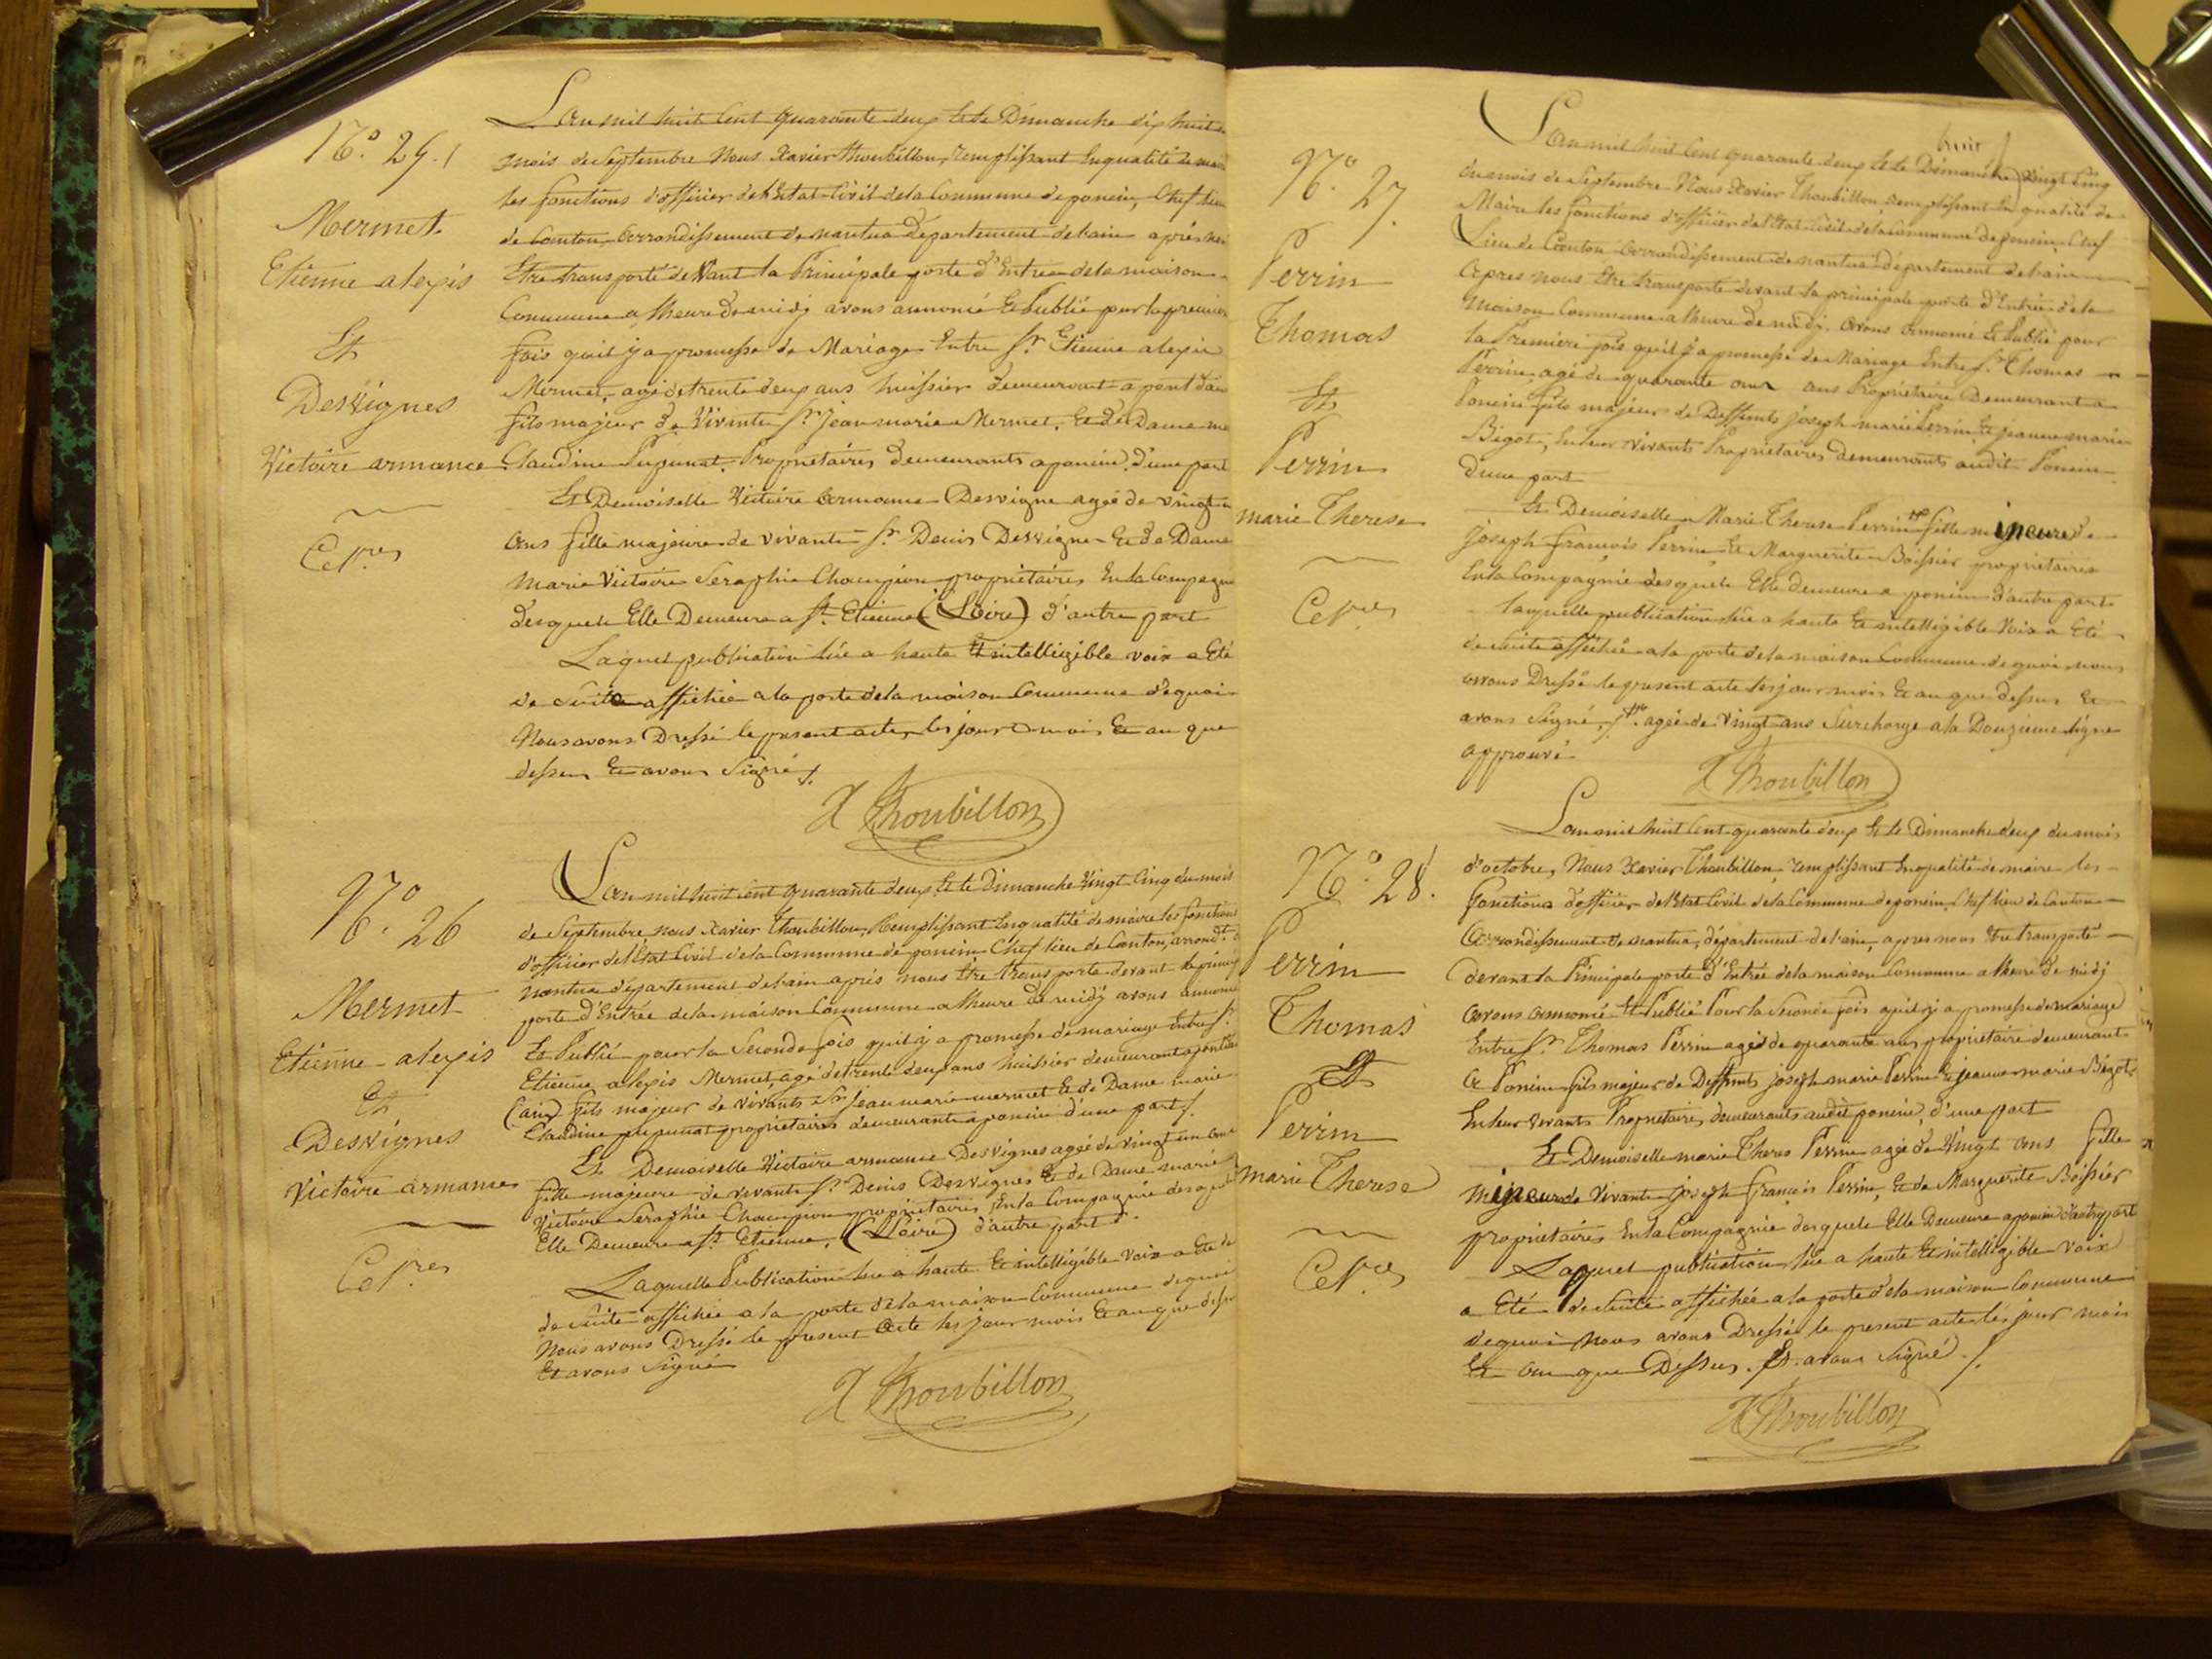 N.o 25.
Mermet
Etienne alexis
Et
Desvignes
Victoire armance
Ce.pres
L'an mil huit Cent quarante deux Et le Dimanche dix huit
mois de Septembre Nous Xavier Thoubillon, remplissant En qualité de maire
les fonctions d'officier de l'Etat-Civil de la Commune de poncin, Chef lieu
de Canton, Arrondissement de nantua Département de l'ain après nous
Etre transporté devant la Principale porte d'Entrée de la maison
Commune a l'heure de midj avons annoncé Et Publié pour la premiere
fois qu'il y a promesse de Mariage Entre Sr. Etienne alexis
Mermet, agé de trente deux ans huissier demeurant a pont d'ain
fils majeur de Vivants Sr. Jean marie Mermet, Et de Dame
Claudine Pupunat, Propriétaires demeurants a poncin, d'une part
Et Demoiselle Victoire Armance Desvigne agée de vingt un
Ans fille majeure de vivants Sr. Denis Desvignes Et de Dame
Marie Victoire Seraphie Champion propriétaires En la Compagnie
desquels Elle Demeure a St. Etienne (Loire) d'autre part
Laquel publication lue a haute Et intelligible voix a Eté
de Suite affichée a la porte de la maison Commune de quoi
Nous avons Dressé le présent acte, les jour mois Et an que
dessus Et avons Signé
X Thoubillon
N.o 26
Mermet
Etienne alexis
Et
Desvignes
Victoire armance
Ce.pres
L'an mil huit cent quarante deux Et le dimanche Vingt Cinq du mois
de Septembre nous Xavier Thoubillon, Remplissant En qualité de maire les fonctions
d'officier de l'Etat Civil de la Commune de poncin Chef lieu de Canton, arrondt. de
nantua département de l'ain après nous être transporté devant la principale
porte d'Entrée de la maison Commune a l'heure de midj avons annoncé
Et Publié pour la Seconde fois qu'il y a promesse de mariage Entre Sr.
Etienne alexis Mermet, agé de trente deux ans huissier demeurant a pont d'ain
(ain) fils majeur de vivants Sr. jean marie mermet Et de Dame marie
Claudine pupunat propriétaires demeurants a poncin d'une part
Et Demoiselle Victoire armance Desvignes agée de vingt un ans
fille majeure de vivants Sr. Denis Desvignes Et de Dame marie
Victoire Seraphie Champion propriétaires En la Compagnie desquels
Elle Demeure a St. Etienne, (Loire) d'autre part
Laquelle Publication lue a haute Et intelligible Voix a Eté de
de Suite affichée a la porte de la maison Commune de quoi
Nous avons Dressé le présent acte les jour mois Et an que dessus
Et avons Signé
X Thoubillon
N.o 27.
Perrin
Thomas
Et
Perrin
marie Therese
Ce.pres
huit
L'an mil huit Cent quarante deux Et le Dimanche Vingt Cinq
du mois de Septembre Nous Xavier Thoubillon, remplissant En qualité de
Maire les fonctions d'officier de l'Etat-Civil de la Commune de poncin, Chef
Lieu de Canton Arrondissement de nantua département de l'ain
après nous Etre transporté devant la principale porte d'Entrée de la
Maison Commune a l'heure de midj. avons annoncé Et Publié pour
la Premiere fois qu'il y a promesse de Mariage Entre Sr. Thomas
Perrin, agé de quarante ans Propriétaire Demeurant a
Poncin fils majeur de Deffunts joseph marie Perrin Et jeanne marie
Bigot, En leur vivants Propriétaires demeurants audit Poncin
d'une part
Et Demoiselle Marie Therese Perrin fille mineure de
Joseph François Perrin Et Marguerite Boissier propriétaires
En la Compagnie desquels Elle demeure a poncin d'autre part
Laquelle publication lue a haute Et intelligible Voix a Eté
de Suite affichée a la porte de la maison Commune de quoi nous
avons Dressé le present acte les jour mois Et an que dessus Et
avons Signé, agée de Vingt ans Surcharge a la Douzieme ligne
approuvé
X Thoubillon
N.o 28.
Perrin
Thomas
Et
Perrin
marie Therese
Ce.pres
L'an mil huit Cent quarante deux Et le Dimanche deux du mois
d'octobre, Nous Xavier Thoubillon, remplissant En qualité de maire les
fonctions d'officier de l'Etat Civil de la Commune de poncin, Chef lieu de Canton
Arrondissement de nantua, département de l'ain, apres nous Etre transporté
devant la Principale porte d'Entrée de la maison Commune a l'heure de midj
avons annoncé Et Publié Pour la Seconde fois qu'il y a promesse de mariage
Entre Sr. Thomas Perrin agé de quarante ans propriétaire demeurant
a Poncin fils majeur de Deffunts joseph marie Perrin Et jeanne marie Bigot
En leur vivants Propriétaires demeurants audit poncin, d'une part
Et Demoiselle marie Theres Perrin agée de Vingt ans fille
mineure de Vivants joseph françois Perrin, Et de Marguerite Boissier
propriétaires En la Compagnie desquels Elle Demeure a poncin d'autre part
Laquel publication lue a haute Et intelligible Voix
a Eté de Suite affichée a la porte de la maison Commune
de quoi Nous avons Dressé le present acte les jour mois
Et an que Dessus. Et avons Signé
X Thoubillon